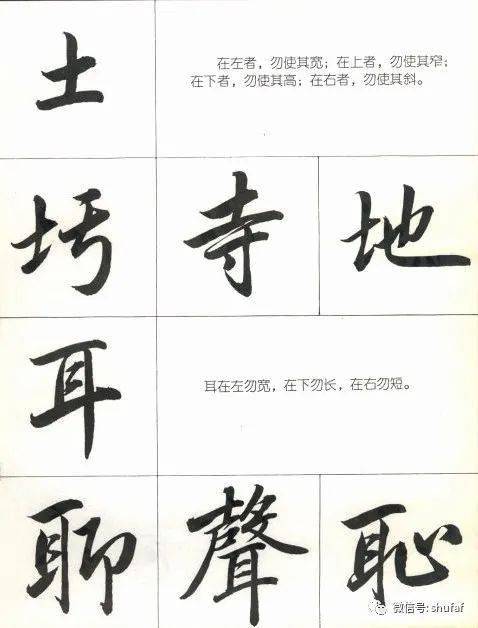 土
在左者，勿使其宽；在上者，勿使其窄；
在下者，勿使其高；在右者，勿使其斜。
圬 寺 地
耳
耳在左勿宽，在下勿长，在右勿短。
聊 聲 恥
微信号: shufaf